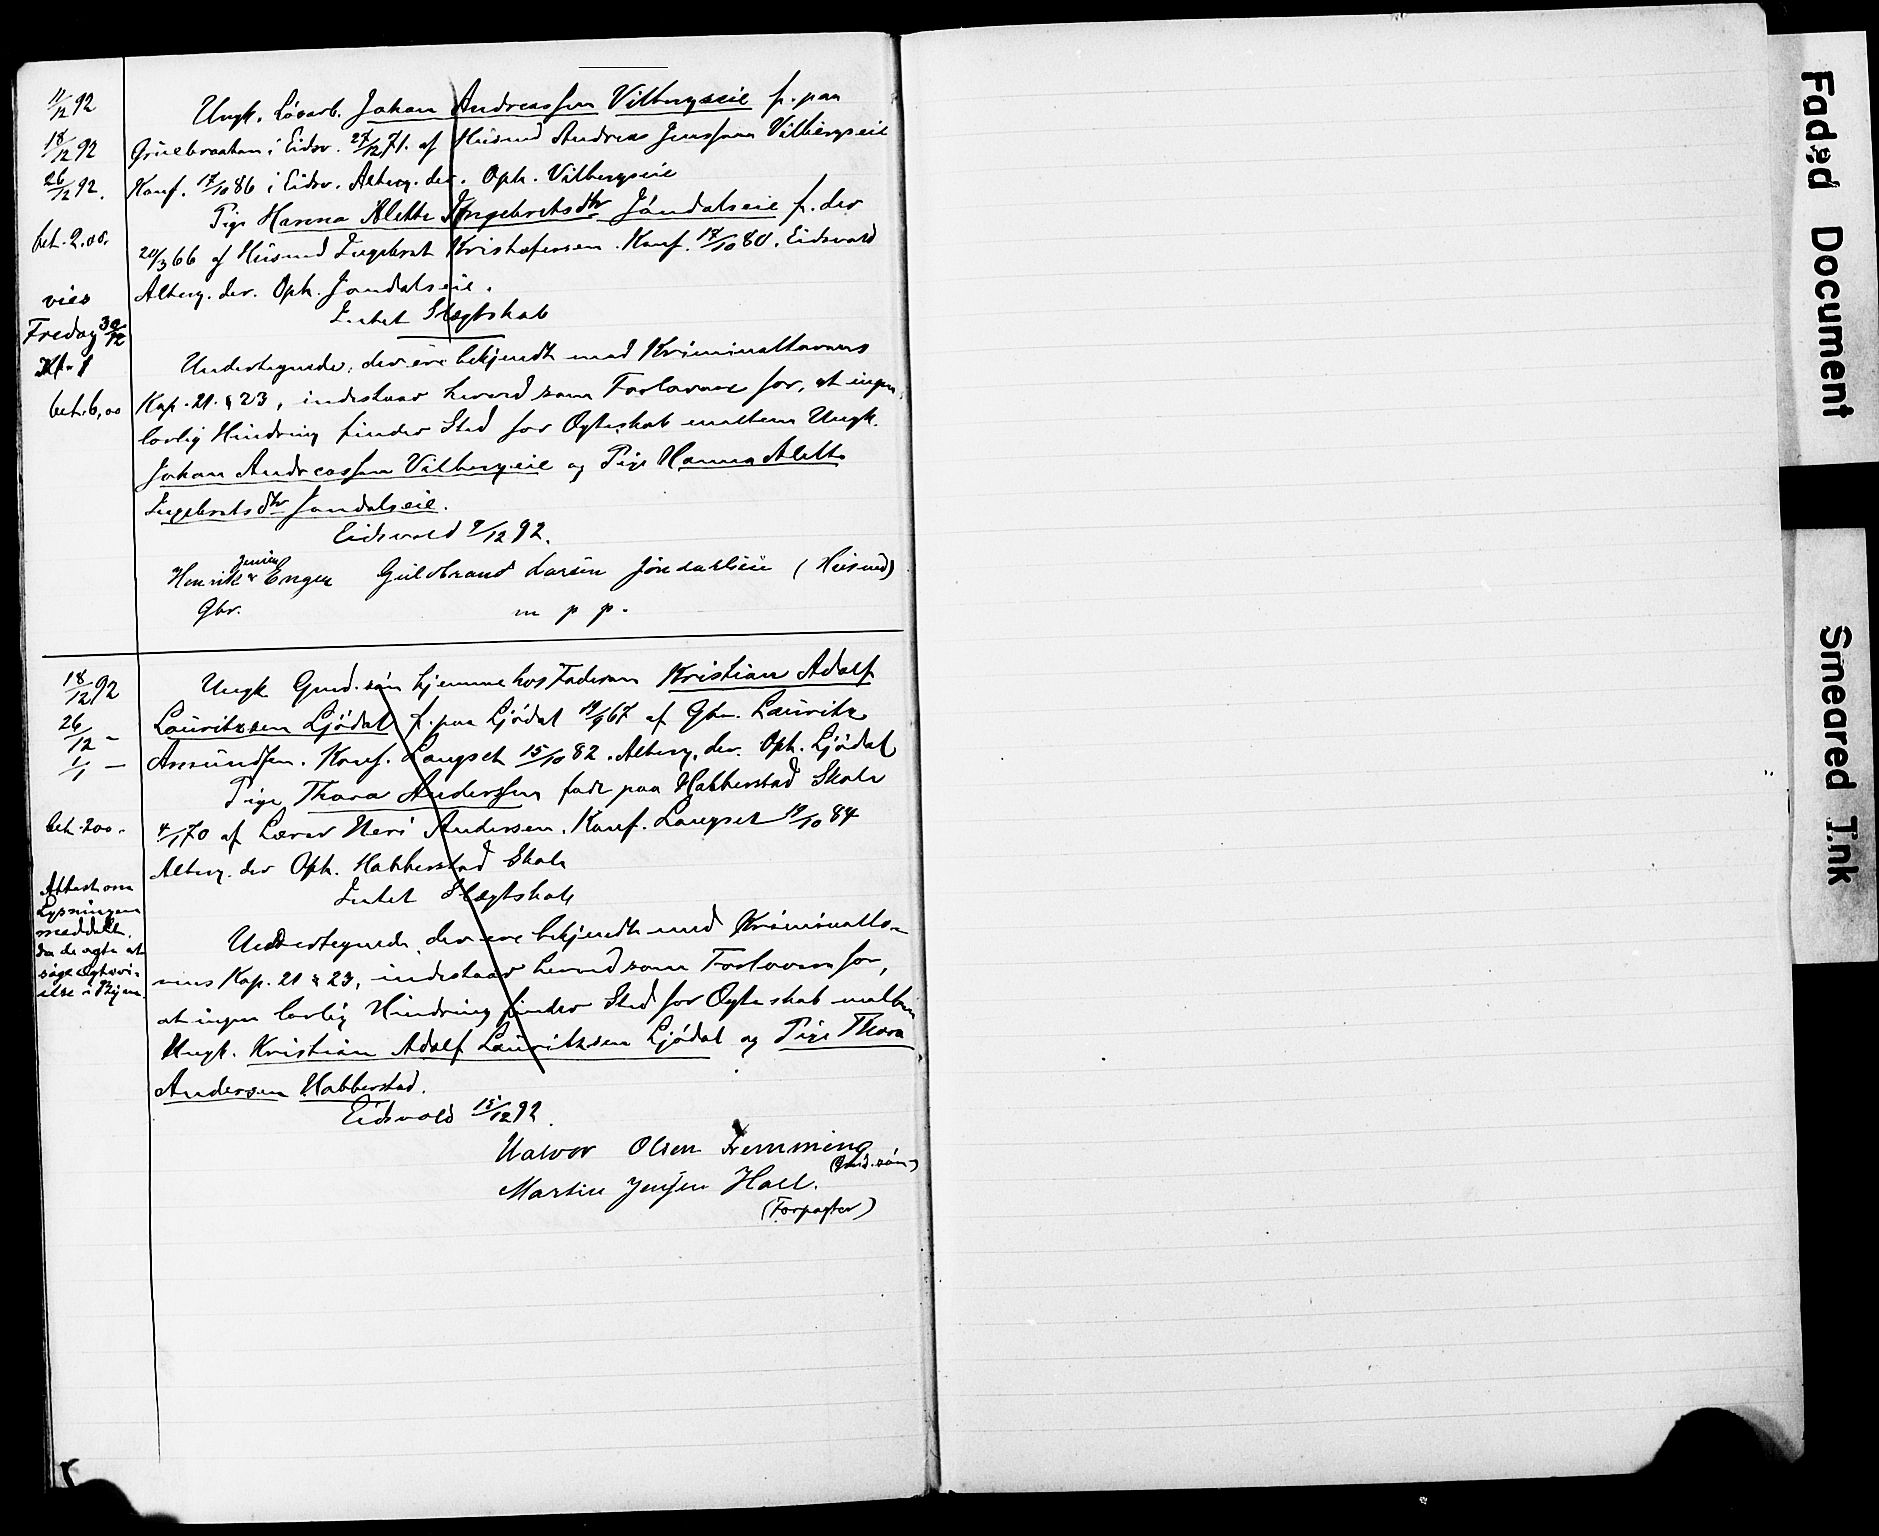 11/12 92
18/12 92
26/12 92.
bet. 2.00.
vies
Fredag 30/12
Kl. 1
bet. 6,00
Ungk. Løsarb. Johan Andreassen Vilbergseie f. paa
i Eidsv. 27/12 71. af Husmd Andreas Jenssen Vilbergseie
Konf. 17/10 86 i Eidsv. Alterg. der. Oph. Vilbergseie
Pige Hanna Alette Ingebretsdtr Jøndalseie f. der
20/3 66 af Husmd Ingebret Kristofersen. Konf. 17/10 80. Eidsvold
Alterg. der. Oph. Jøndalseie.
Intet Slægtskab
Undertegnede, der ere bekjendt med Kriminallovens
Kap. 21. § 23, indestaar herved som Forlovere for, at ingen
lovlig Hindring finder Sted for Ægteskab mellem Ungk.
Johan Andreassen Vilbergseie og Pige Hanna Alette
Ingebretsdtr Jøndalseie.
Eidsvold 9/12 92.
Henrik Jensen Engen Guldbrand Larsen Jøndalseie (Husmd)
Gbr. m p p.
18/12 92
26/12 –
1/1 –
bet. 2 00.
Attest om
Lysningen
meddelt,
da de agte at
søge Ægtevi-
else i Byen.
Ungk Gmd. søn hjemme hos Faderen Kristian Adolf
Lauritzsen Ljødal f. paa Ljødal 19/9 67 af Gbr. Lauritz
Amundsen. Konf. Langset 15/10 82. Alterg. der. Oph. Ljødal
Pige Thora Andersen født paa Habberstad Skole
4/1 70 af Lærer Andersen. Konf. Langset 19/10 84
Alterg. der Oph. Habberstad Skole
Intet Slægtskab
Undertegnede, der ere bekjendte med Kriminallo-
vens Kap. 21 § 23, indestaar herved som Forlovere for,
at ingen lovlig Hindring finder Sted for Ægteskab mellem
Ungk. Kristian Adolf Lauritzsen Ljødal og Pige Thora
Andersen Habberstad.
Eidsvold 15/12 92.
Halvor Olsen Femming
(Gmd. søn)
Martin Jensen Hall.
(Forpagter)
Faded Document
Smeared Ink